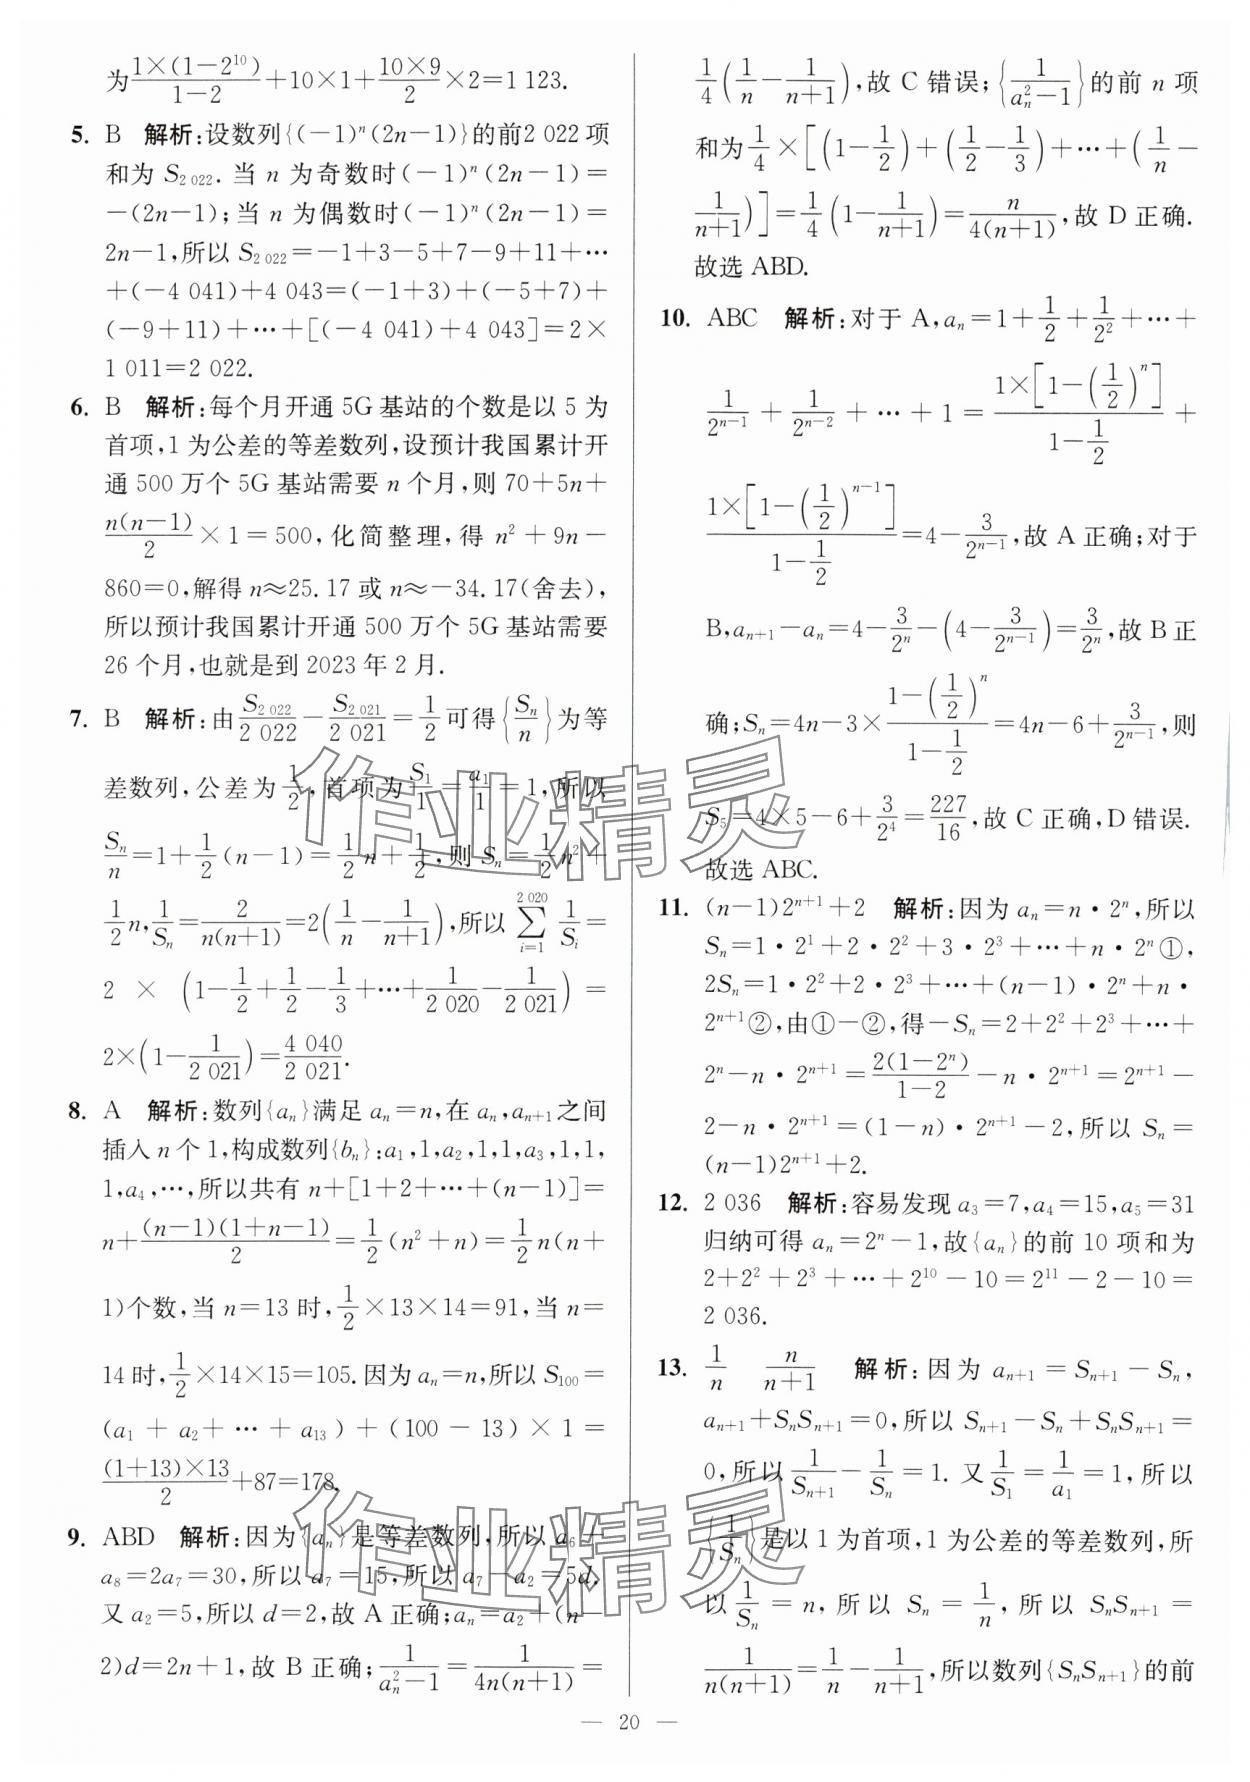 为\frac{1×(1-2^{10})}{1-2}+10×1+\frac{10×9}{2}×2=1 123.
5. B 解析:设数列{(-1)^n(2n-1)}的前2 022 项
和为 S_{2 022}. 当 n 为奇数时(-1)^n(2n-1)=
-(2n-1);当 n 为偶数时(-1)^n(2n-1)=
2n-1,所以 S_{2 022}=-1+3-5+7-9+11+…
+(-4 041)+4 043=(-1+3)+(-5+7)+
(-9+11)+…+[(-4 041)+4 043]=2×
1 011=2 022.
6. B 解析:每个月开通 5G 基站的个数是以 5 为
首项,1 为公差的等差数列,设预计我国累计开
通 500 万个 5G 基站需要 n 个月,则 70+5n+
\frac{n(n-1)}{2}×1=500,化简整理,得 n^2+9n-
860=0,解得 n≈25.17 或 n≈-34.17(舍去),
所以预计我国累计开通 500 万个 5G 基站需要
26 个月,也就是到 2023 年 2 月.
7. B 解析:由\frac{S_{2 022}}{2 022}-\frac{S_{2 021}}{2 021}=\frac{1}{2}可得{\frac{S_n}{n}}为等
差数列,公差为\frac{1}{2},首项为\frac{S_1}{1}=\frac{a_1}{1}=1,所以
\frac{S_n}{n}=1+\frac{1}{2}(n-1)=\frac{1}{2}n+\frac{1}{2},则 S_n=\frac{1}{2}n^2+
\frac{1}{2}n,\frac{1}{S_n}=\frac{2}{n(n+1)}=2(\frac{1}{n}-\frac{1}{n+1}),所以\sum_{i=1}^{2 020}\frac{1}{S_i}=
2×(1-\frac{1}{2}+\frac{1}{2}-\frac{1}{3}+…+\frac{1}{2 020}-\frac{1}{2 021})=
2×(1-\frac{1}{2 021})=\frac{4 040}{2 021}.
8. A 解析:数列{a_n}满足 a_n=n,在 a_n,a_{n+1}之间
插入 n 个 1,构成数列{b_n}:a_1,1,a_2,1,1,a_3,1,1,
1,a_4,…,所以共有 n+[1+2+…+(n-1)]=
n+\frac{(n-1)(1+n-1)}{2}=\frac{1}{2}(n^2+n)=\frac{1}{2}n(n+
1)个数,当 n=13 时,\frac{1}{2}×13×14=91,当 n=
14 时,\frac{1}{2}×14×15=105. 因为 a_n=n,所以 S_{100}=
(a_1+a_2+…+a_{13})+(100-13)×1=
\frac{(1+13)×13}{2}+87=178.
9. ABD 解析:因为{a_n}是等差数列,所以 a_6+
a_8=2a_7=30,所以 a_7=15,所以 a_7-a_2=5d.
又 a_2=5,所以 d=2,故 A 正确;a_n=a_2+(n-
2)d=2n+1,故 B 正确;\frac{1}{a_n^2-1}=\frac{1}{4n(n+1)}=
\frac{1}{4}(\frac{1}{n}-\frac{1}{n+1}),故 C 错误;{\frac{1}{a_n^2-1}}的前 n 项
和为\frac{1}{4}×[(1-\frac{1}{2})+(\frac{1}{2}-\frac{1}{3})+…+(\frac{1}{n}-
\frac{1}{n+1})]=\frac{1}{4}(1-\frac{1}{n+1})=\frac{n}{4(n+1)},故 D 正确.
故选 ABD.
10. ABC 解析:对于 A,a_n=1+\frac{1}{2}+\frac{1}{2^2}+…+
\frac{1}{2^{n-1}}+\frac{1}{2^{n-2}}+…+1=\frac{1×[1-(\frac{1}{2})^n]}{1-\frac{1}{2}}+
\frac{1×[1-(\frac{1}{2})^{n-1}]}{1-\frac{1}{2}}=4-\frac{3}{2^{n-1}},故 A 正确;对于
B,a_{n+1}-a_n=4-\frac{3}{2^n}-(4-\frac{3}{2^{n-1}})=\frac{3}{2^n},故 B 正
确;S_n=4n-3×\frac{1-(\frac{1}{2})^n}{1-\frac{1}{2}}=4n-6+\frac{3}{2^{n-1}},则
S_5=4×5-6+\frac{3}{2^4}=\frac{227}{16},故 C 正确,D 错误.
故选 ABC.
11. (n-1)2^{n+1}+2 解析:因为 a_n=n·2^n,所以
S_n=1·2^1+2·2^2+3·2^3+…+n·2^n①,
2S_n=1·2^2+2·2^3+…+(n-1)·2^n+n·
2^{n+1}②,由①-②,得-S_n=2+2^2+2^3+…+
2^n-n·2^{n+1}=\frac{2(1-2^n)}{1-2}-n·2^{n+1}=2^{n+1}-
2-n·2^{n+1}=(1-n)·2^{n+1}-2,所以 S_n=
(n-1)2^{n+1}+2.
12. 2 036 解析:容易发现 a_3=7,a_4=15,a_5=31
归纳可得 a_n=2^n-1,故{a_n}的前 10 项和为
2+2^2+2^3+…+2^{10}-10=2^{11}-2-10=
2 036.
13. \frac{1}{n} \frac{n}{n+1} 解析:因为 a_{n+1}=S_{n+1}-S_n,
a_{n+1}+S_nS_{n+1}=0,所以 S_{n+1}-S_n+S_nS_{n+1}=
0,所以\frac{1}{S_{n+1}}-\frac{1}{S_n}=1. 又\frac{1}{S_1}=\frac{1}{a_1}=1,所以
{\frac{1}{S_n}}是以 1 为首项,1 为公差的等差数列,所
以\frac{1}{S_n}=n,所以 S_n=\frac{1}{n},所以 S_nS_{n+1}=
\frac{1}{n(n+1)}=\frac{1}{n}-\frac{1}{n+1},所以数列{S_nS_{n+1}}的前
— 20 —
作业精灵
作业精灵